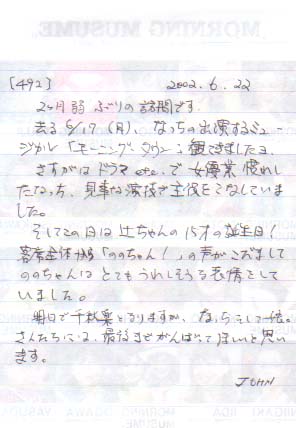 MORNING MUSUME
[492] 2002.6.22
2ヶ月弱ぶりの訪問です。
去る6/17(月)、なっちの出演するミュー
ジカル「モーニング・タウン」観てきましたヨ。
さすがはドラマetc.で女優業慣れし
たなっち、見事な演技で主役をこなしていま
した。
そしてこの日は辻ちゃんの15才の誕生日!
客席全体から「ののちゃん!」の声がこだまして
ののちゃんはとてもうれしそうな表情をして
いました。
明日で千秋楽となりますが、なっちそして一徹。
さんたちには、最後までがんばってほしいと思い
ます。
JOHN
IIDA MORNING OGAWA YASUDA
MUSUME